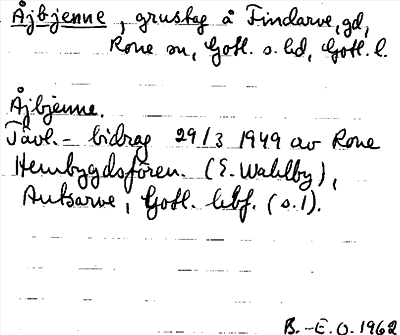 Åjbjenne, grustag å Findarve, gd,
Rone sn, Gotl. s. hd, Gotl. l.
Åjbjenne.
Tävl.- bidrag 29/3 1949 av Rone
Hembygdsfören. (E. Wahlby),
Autsarve, Gotl. lbf. (s. 1).
B.-E. O. 1962